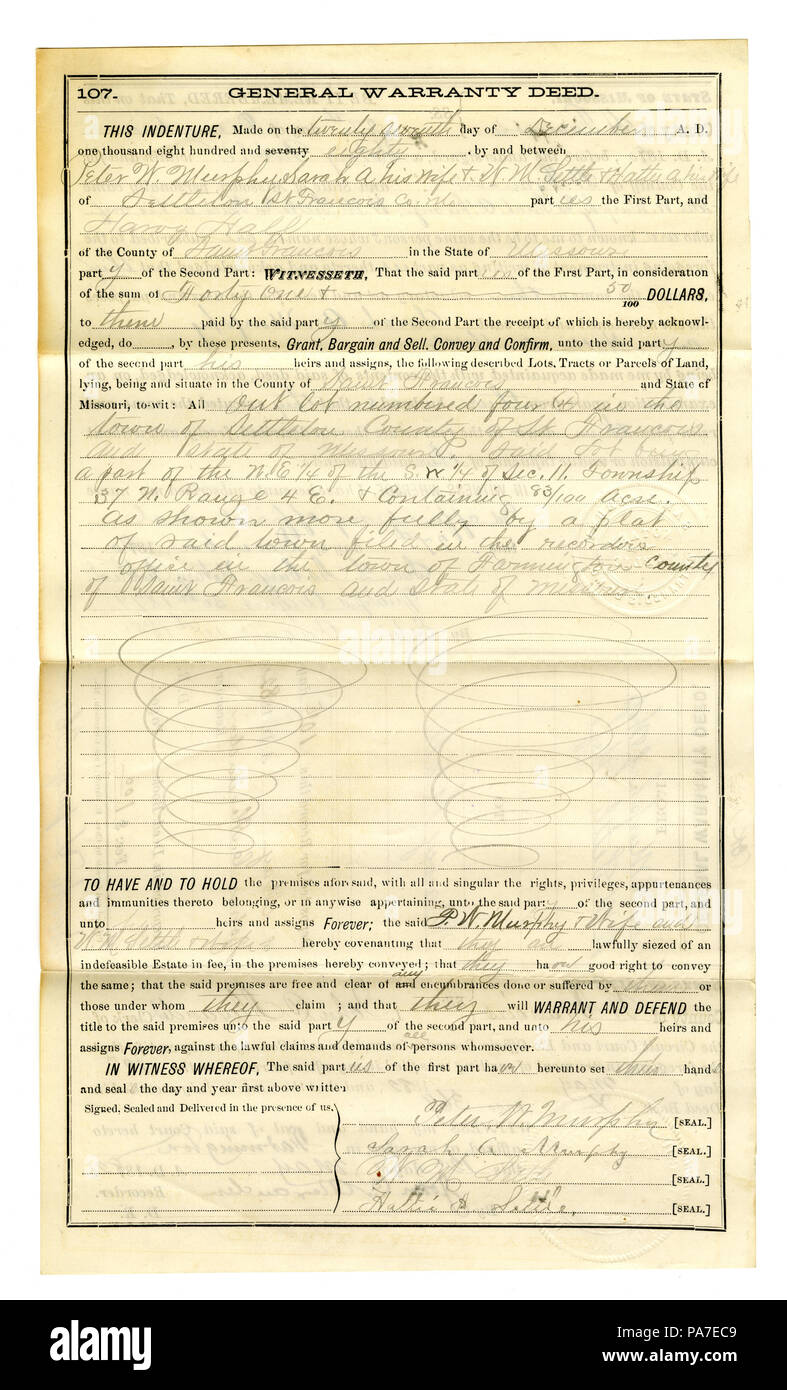 107. GENERAL WARRANTY DEED.
THIS INDENTURE, Made on the twenty seventh day of December A. D.
one thousand eight hundred and seventy eighty, by and between
Peter W. Murphy Sarah A his wife & W. M. Settle & Hattie A his wife
of St Francois Co. Mo parties the First Part, and
of the County of Saint Francois in the State of Missouri
party of the Second Part: WITNESSETH, That the said parties of the First Part, in consideration
of the sum of Forty One & 50/100 DOLLARS,
to them paid by the said party of the Second Part the receipt of which is hereby acknowl-
edged, do, by these presents, Grant, Bargain and Sell, Convey and Confirm, unto the said party
of the second part his heirs and assigns, the following described Lots, Tracts or Parcels of Land,
lying, being and situate in the County of Saint Francois and State of
Missouri, to-wit: All Out lot numbered four (4) in the
town of County of St. Francois
and State of Missouri. Said lot being
a part of the N. E 1/4 of the S. W 1/4 of Sec. 11. Township
37 N. Range 4 E. & Containing 83/100 acre.
as shown more fully by a plat
of said town filed in the recorders
office in the town of Farmington County
of Saint Francois and State of Missouri.
TO HAVE AND TO HOLD the premises aforesaid, with all and singular the rights, privileges, appurtenances
and immunities thereto belonging, or in anywise appertaining, unto the said party of the second part, and
unto heirs and assigns Forever; the said P. W. Murphy & Wife and
W M Settle & wife hereby covenanting that they are lawfully siezed of an
indefeasible Estate in fee, in the premises hereby conveyed; that they have good right to convey
the same; that said premises are free and clear of and any encumbrances done or suffered by them or
those under whom they claim; and that they will WARRANT AND DEFEND the
title to the said premises unto the said party of the second part, and unto his heirs and
assigns Forever, against the lawful claims and demands of all persons whomsoever.
IN WITNESS WHEREOF, The said parties of the first part have hereunto set their hands
and seal the day and year first above written
Signed, Sealed and Delivered in the presence of us,
Peter W. Murphy [SEAL.]
Sarah A. Murphy [SEAL.]
[SEAL.]
Hattie A Settle. [SEAL.]
alamy
Image ID: PA7EC9
www.alamy.com